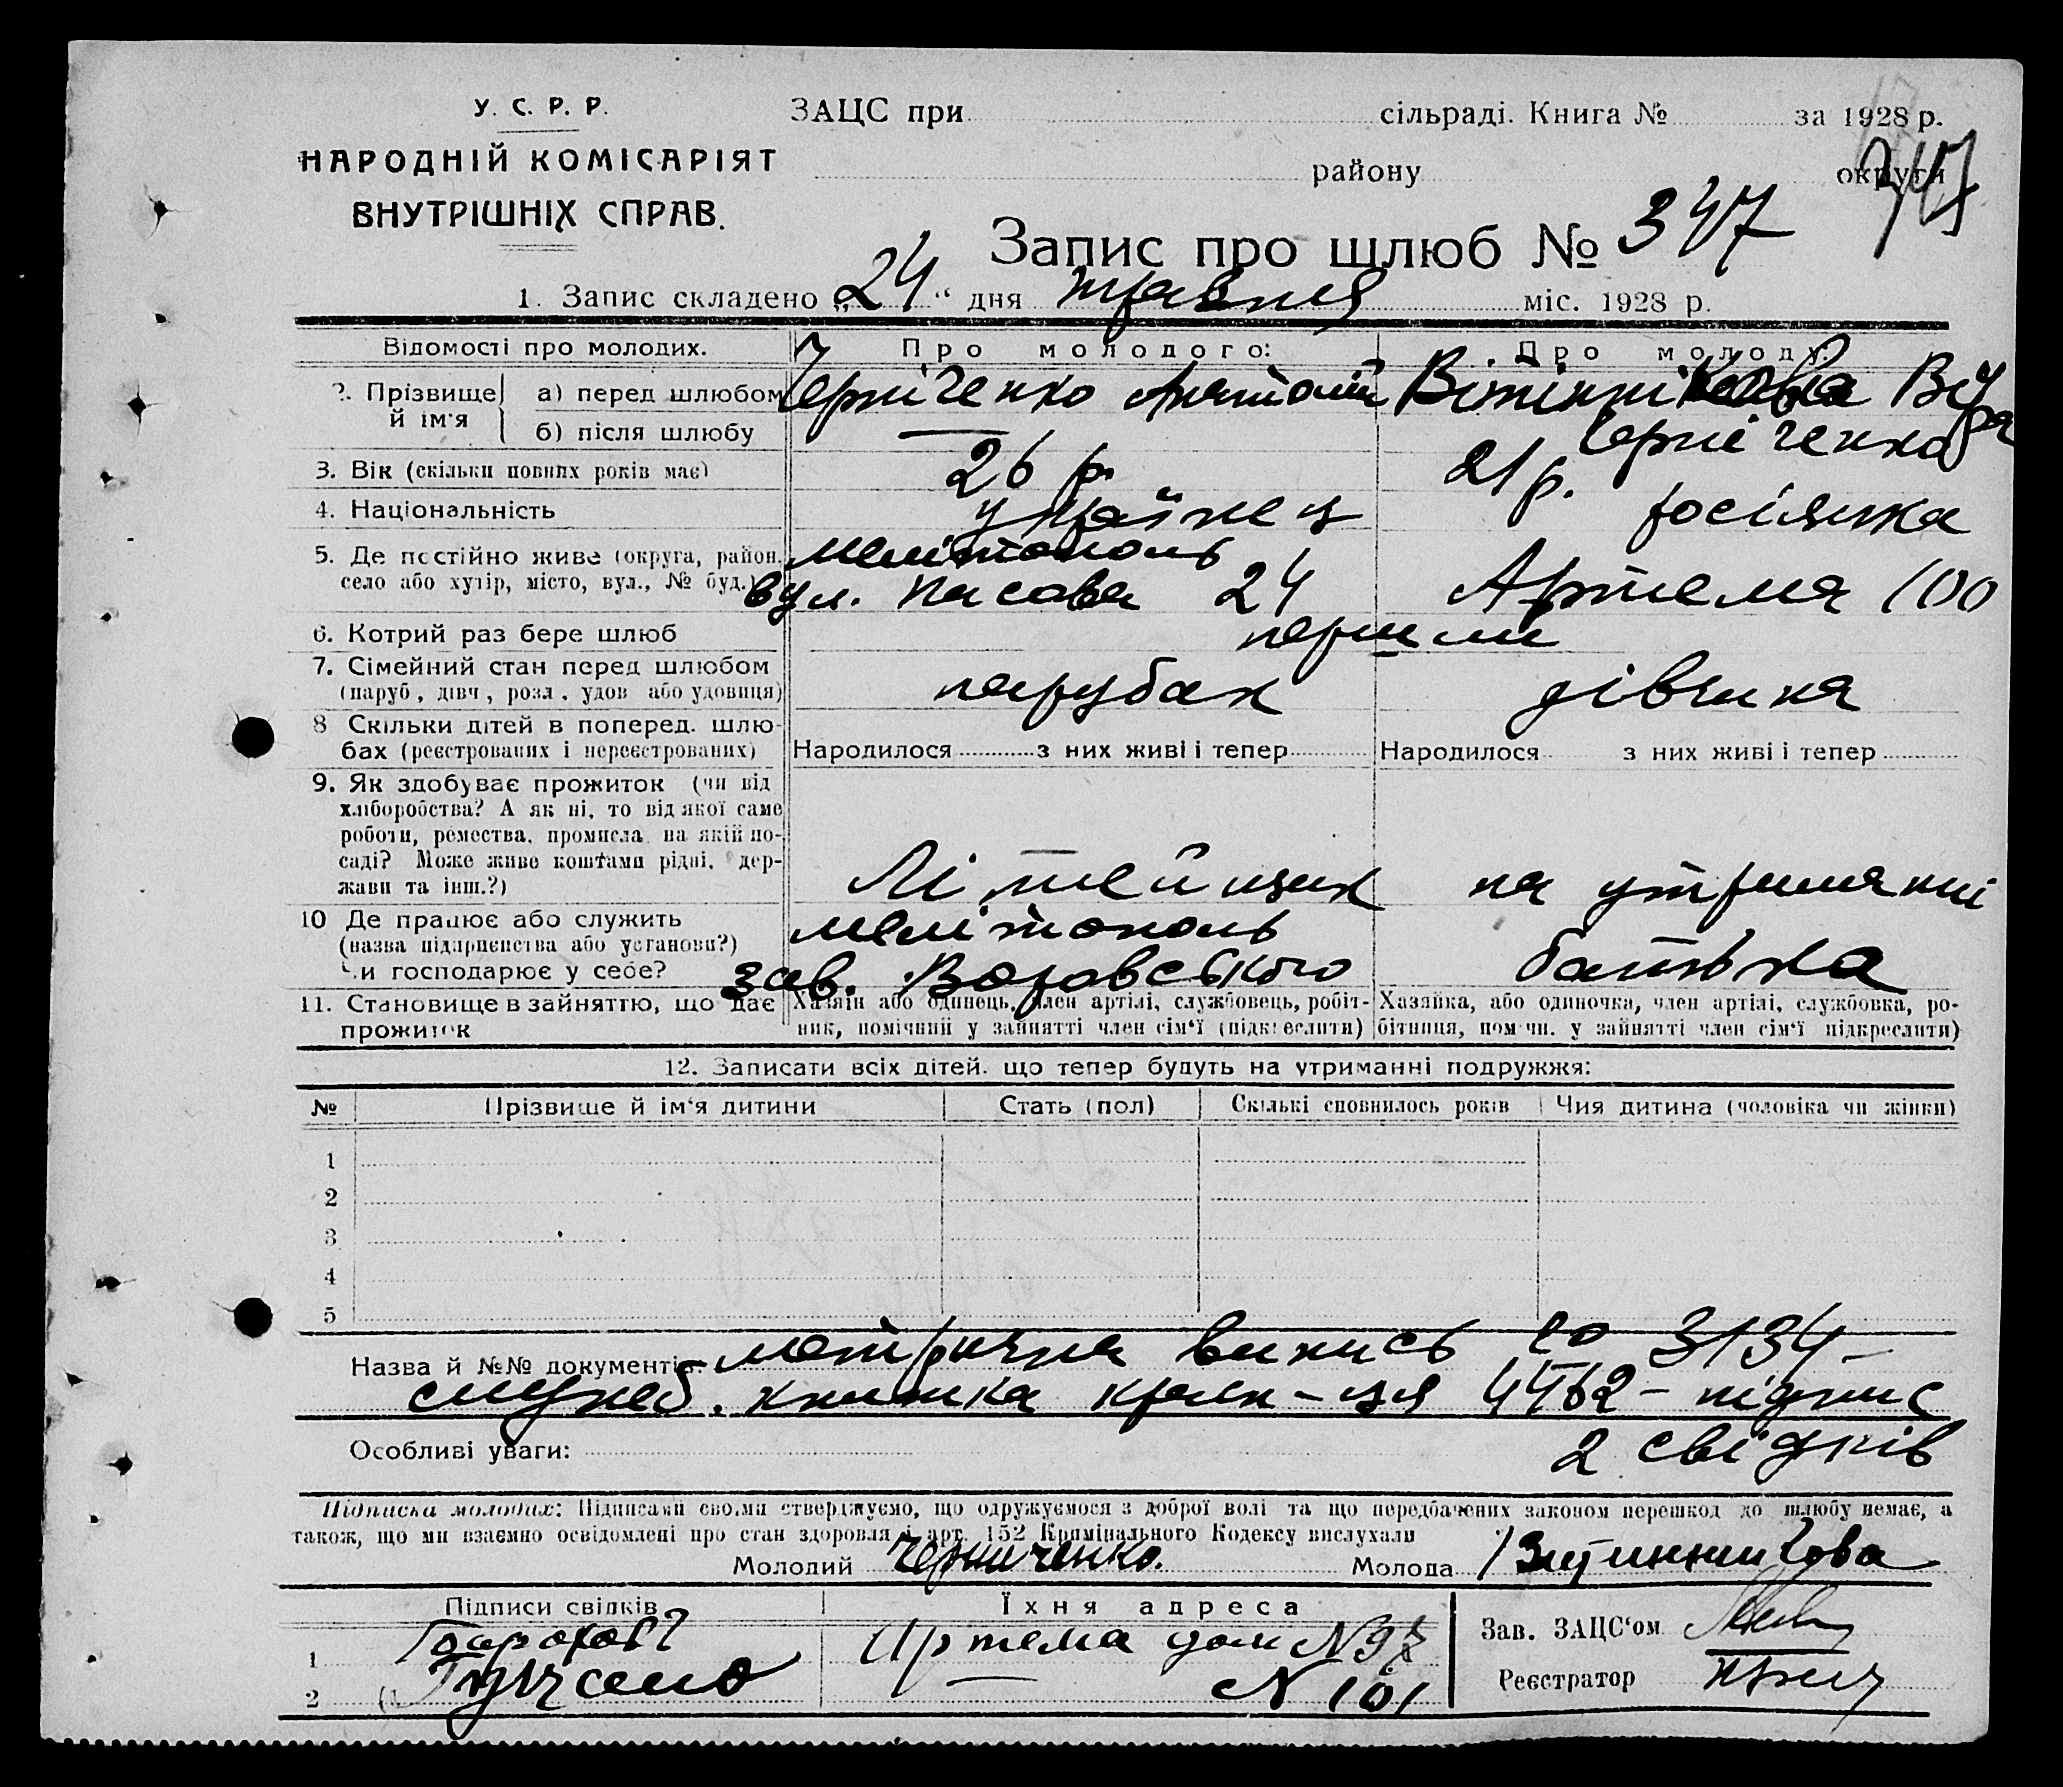 У. С. Р. Р.
НАРОДНІЙ КОМІСАРІЯТ
ВНУТРІШНІХ СПРАВ.
ЗАЦС при сільраді. Книга № за 1928 р.
району округи
347
Запис про шлюб № 347
1. Запис складено „24“ дня травня міс. 1928 р.
Відомості про молодих. Про молодого: Про молоду:
2. Прізвище й ім'я а) перед шлюбом Черніченко Анатолій Вітіннікова Віра
б) після шлюбу — Черніченко
3. Вік (скільки повних років має) 26 р. 21 р.
4. Національність українец росіянка
5. Де постійно живе (округа, район, мелітополь
село або хутір, місто, вул., № буд.) вул. 24 Артема 100
6. Котрий раз бере шлюб перши
7. Сімейний стан перед шлюбом
(паруб., дівч., розл., удов. або удовиця) парубак дівчина
8 Скільки дітей в поперед. шлю-
бах (реєстрованих і нереєстрованих) Народилося з них живі і тепер Народилося з них живі і тепер
9. Як здобуває прожиток (чи від
хліборобства? А як ні, то від якої саме
роботи, ремества, промисла, на якій по-
саді? Може живе коштами рідні, дер-
жави та інш.?) Літейщик на утриманні
10 Де працює або служить мелітополь
(назва підприємства або установи?)
Чи господарює у себе? зав. Воровського батька
11. Становище в зайняттю, що дає Хазяїн або одинець, член артілі, службовець, робіт- Хазяйка, або одиночка, член артілі, службовка, ро-
прожиток ник, помічний у зайнятті член сім'ї (підкреслити) бітниця, помічн. у зайнятті член сім'ї підкреслити)
12. Записати всіх дітей, що тепер будуть на утриманні подружжя:
№ Прізвище й ім'я дитини Стать (пол) Скількі сповнилось років Чия дитина (чоловіка чи жінки)
1
2
3
4
5
Назва й №№ документів: метрична випись 3134 –
служеб. книжка 4462 – підпис
Особливі уваги: 2 свідків
Підписка молодих: Підписами своїми стверджуємо, що одружуємося з доброї волі та що передбачених законом перешкод до шлюбу немає, а
також, що ми взаємно освідомлені про стан здоровля й арт. 152 Кримінального Кодексу вислухали
Молодий Черниченко. Молода Витинникова
Підписи свідків Їхня адреса
1 Артема дом
2 — N 101
Зав. ЗАЦС'ом
Реєстратор